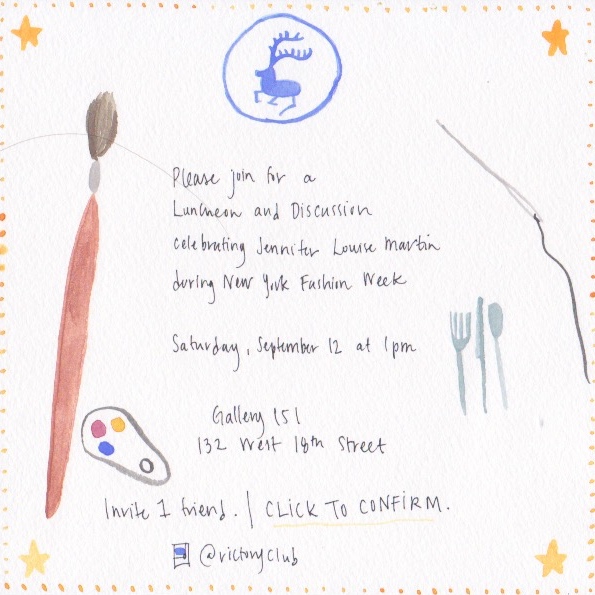 Please join for a
Luncheon and Discussion
celebrating Jennifer Louise Martin
during New York Fashion Week
Saturday, September 12 at 1pm
Gallery 151
132 West 18th Street
Invite 1 friend. | CLICK TO CONFIRM.
@victoryclub